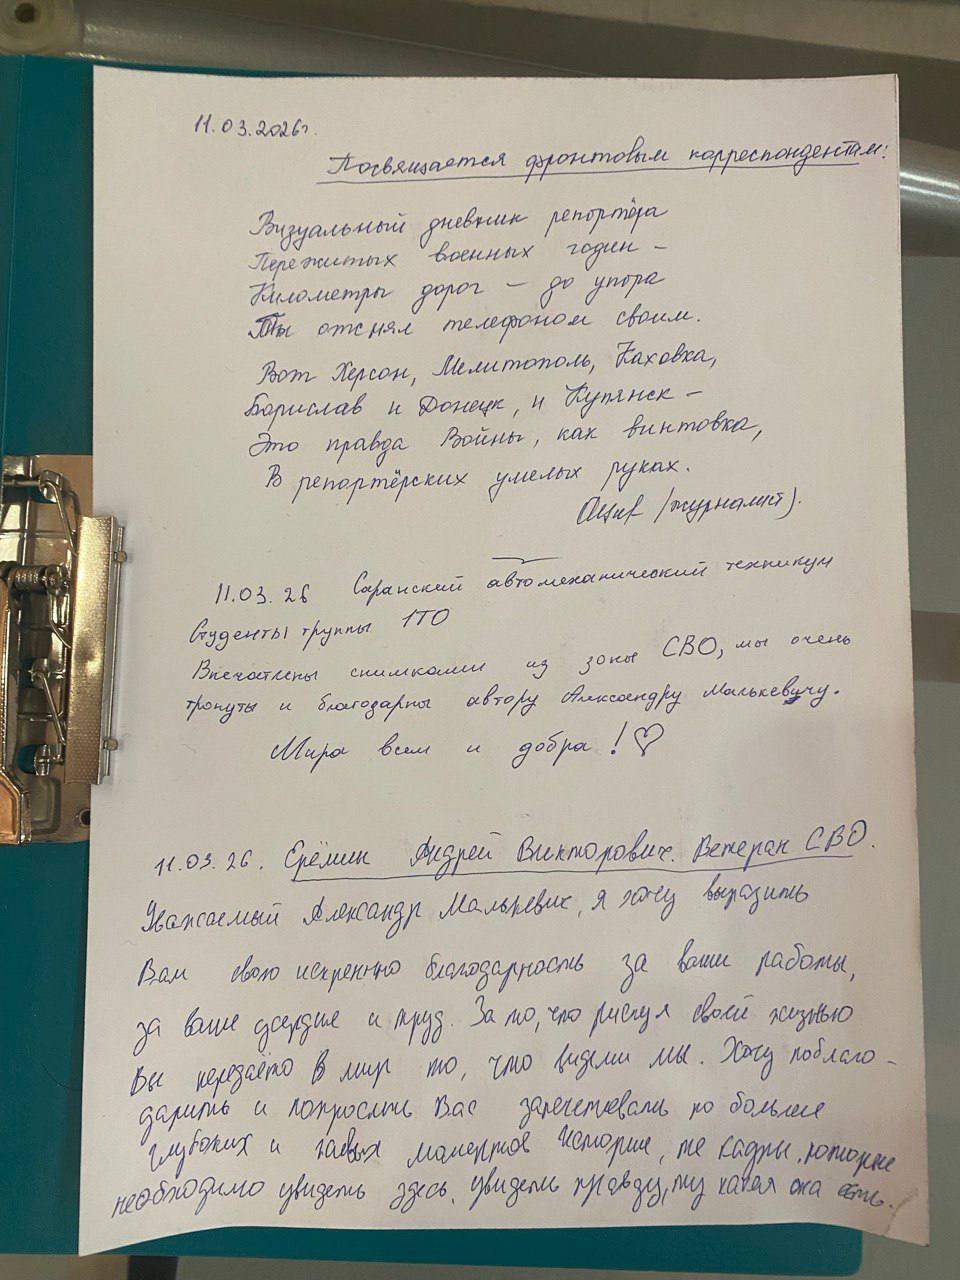 11.03.2026г.
Посвящается фронтовым корреспондентам:
Визуальный дневник репортёра
Пережитых военных годин –
Километры дорог – до упора
Ты отснял телефоном своим.
Вот Херсон, Мелитополь, Каховка,
Борислав и Донецк, и Купянск –
Это правда Войны, как винтовка,
В репортёрских умелых руках.
(журналист).
11.03.26 Саранский автомеханический техникум
Студенты группы 1ТО
Впечатлены снимками из зоны СВО, мы очень
тронуты и благодарны автору Александру Малькевичу.
Мира всем и добра! ♡
11.03.26. Ерёмин Андрей Викторович. Ветеран СВО.
Уважаемый Александр Малькевич, я хочу выразить
Вам свою искреннюю благодарность за ваши работы,
за ваше усердие и труд. За то, что рискуя своей жизнью
Вы передаёте в мир то, что видели мы. Хочу поблаго-
дарить и попросить Вас запечетлевать по больше
глубоких и моментов Истории, те кадры, которые
необходимо увидеть здесь, увидеть правду, ту какая она есть.